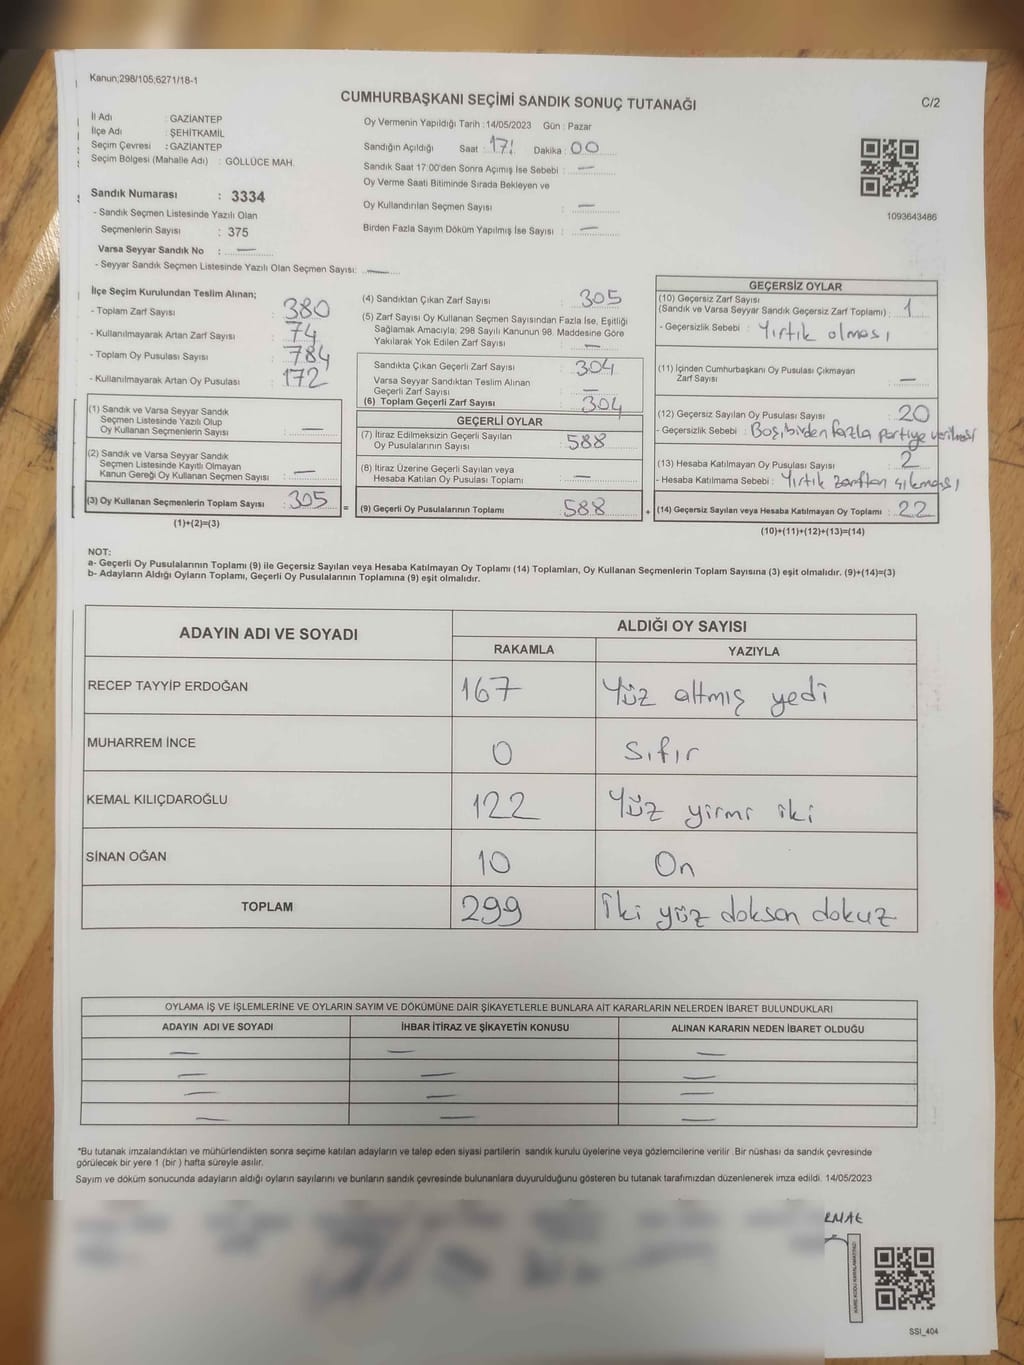 Kanun;298/105;6271/18-1
CUMHURBAŞKANI SEÇİMİ SANDIK SONUÇ TUTANAĞI
C/2
İl Adı : GAZİANTEP
İlçe Adı : ŞEHİTKAMİL
Seçim Çevresi : GAZİANTEP
Seçim Bölgesi (Mahalle Adı) : GÖLLÜCE MAH.
Sandık Numarası : 3334
- Sandık Seçmen Listesinde Yazılı Olan
Seçmenlerin Sayısı : 375
Varsa Seyyar Sandık No : —
- Seyyar Sandık Seçmen Listesinde Yazılı Olan Seçmen Sayısı: —
Oy Vermenin Yapıldığı Tarih : 14/05/2023 Gün : Pazar
Sandığın Açıldığı Saat : 17: Dakika : 00
Sandık Saat 17:00'den Sonra Açımış İse Sebebi : —
Oy Verme Saati Bitiminde Sırada Bekleyen ve
Oy Kullandırılan Seçmen Sayısı : —
Birden Fazla Sayım Döküm Yapılmış İse Sayısı : —
1093643486
İlçe Seçim Kurulundan Teslim Alınan;
- Toplam Zarf Sayısı : 380
- Kullanılmayarak Artan Zarf Sayısı : 74
- Toplam Oy Pusulası Sayısı : 784
- Kullanılmayarak Artan Oy Pusulası : 172
(1) Sandık ve Varsa Seyyar Sandık
Seçmen Listesinde Yazılı Olup
Oy Kullanan Seçmenlerin Sayısı : —
(2) Sandık ve Varsa Seyyar Sandık
Seçmen Listesinde Kayıtlı Olmayan
Kanun Gereği Oy Kullanan Seçmen Sayısı : —
(3) Oy Kullanan Seçmenlerin Toplam Sayısı : 305 =
(1)+(2)=(3)
(4) Sandıktan Çıkan Zarf Sayısı : 305
(5) Zarf Sayısı Oy Kullanan Seçmen Sayısından Fazla İse, Eşitliği
Sağlamak Amacıyla; 298 Sayılı Kanunun 98. Maddesine Göre
Yakılarak Yok Edilen Zarf Sayısı : —
Sandıkta Çıkan Geçerli Zarf Sayısı : 304
Varsa Seyyar Sandıktan Teslim Alınan
Geçerli Zarf Sayısı : —
(6) Toplam Geçerli Zarf Sayısı : 304
GEÇERLİ OYLAR
(7) İtiraz Edilmeksizin Geçerli Sayılan
Oy Pusulalarının Sayısı : 588
(8) İtiraz Üzerine Geçerli Sayılan veya
Hesaba Katılan Oy Pusulası Toplamı : —
(9) Geçerli Oy Pusulalarının Toplamı : 588 +
GEÇERSİZ OYLAR
(10) Geçersiz Zarf Sayısı
(Sandık ve Varsa Seyyar Sandık Geçersiz Zarf Toplamı) : 1
- Geçersizlik Sebebi : Yırtık olması
(11) İçinden Cumhurbaşkanı Oy Pusulası Çıkmayan
Zarf Sayısı : —
(12) Geçersiz Sayılan Oy Pusulası Sayısı : 20
- Geçersizlik Sebebi : Boş, birden fazla partiye verilmesi
(13) Hesaba Katılmayan Oy Pusulası Sayısı : 2
- Hesaba Katılmama Sebebi : Yırtık zarftan çıkması
(14) Geçersiz Sayılan veya Hesaba Katılmayan Oy Toplamı : 22
(10)+(11)+(12)+(13)=(14)
NOT:
a- Geçerli Oy Pusulalarının Toplamı (9) ile Geçersiz Sayılan veya Hesaba Katılmayan Oy Toplamı (14) Toplamları, Oy Kullanan Seçmenlerin Toplam Sayısına (3) eşit olmalıdır. (9)+(14)=(3)
b- Adayların Aldığı Oyların Toplamı, Geçerli Oy Pusulalarının Toplamına (9) eşit olmalıdır.
ADAYIN ADI VE SOYADI ALDIĞI OY SAYISI
RAKAMLA YAZIYLA
RECEP TAYYİP ERDOĞAN 167 Yüz altmış yedi
MUHARREM İNCE 0 Sıfır
KEMAL KILIÇDAROĞLU 122 Yüz yirmi iki
SİNAN OĞAN 10 On
TOPLAM 299 İki yüz doksan dokuz
OYLAMA İŞ VE İŞLEMLERİNE VE OYLARIN SAYIM VE DÖKÜMÜNE DAİR ŞİKAYETLERLE BUNLARA AİT KARARLARIN NELERDEN İBARET BULUNDUKLARI
ADAYIN ADI VE SOYADI İHBAR İTİRAZ VE ŞİKAYETİN KONUSU ALINAN KARARIN NEDEN İBARET OLDUĞU
— — —
— — —
— — —
— — —
*Bu tutanak imzalandıktan ve mühürlendikten sonra seçime katılan adayların ve talep eden siyasi partilerin sandık kurulu üyelerine veya gözlemcilerine verilir .Bir nüshası da sandık çevresinde
görülecek bir yere 1 (bir ) hafta süreyle asılır.
Sayım ve döküm sonucunda adayların aldığı oyların sayılarını ve bunların sandık çevresinde bulunanlara duyurulduğunu gösteren bu tutanak tarafımızdan düzenlenerek imza edildi. 14/05/2023
SSI_404